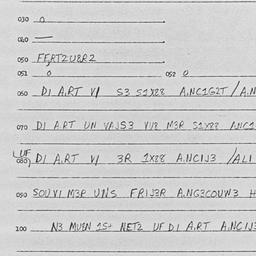 030 0
040 —
050 FERTZU8R2
051 0 052 0
060 DI A.RT VI S3 S1X88 A.NC1G2T /A.N
070 DI A.RT UN VAJS3 VU2 M3R S1X88 ANC1
LUF
080 DI A.RT VI 3R 1X88 A.NCIJ3 /ALI
090 SOUVI M3R UNS FRIJ3R A.NG3COUW3 H
100 N3 MUEN 1S+ NET2 UF DI A.RT A.NCIJ3